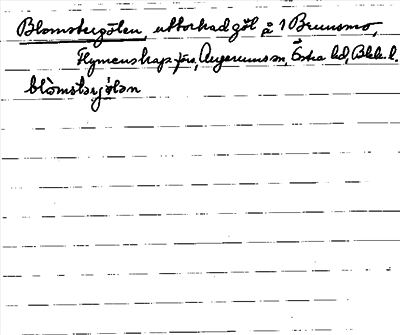 Blomstergölen, uttorkad göl å 1 Brunsmo,
Flymenskap förs, Augerums sn, Östra hd, Blek. l.
blòmstərjö́lən